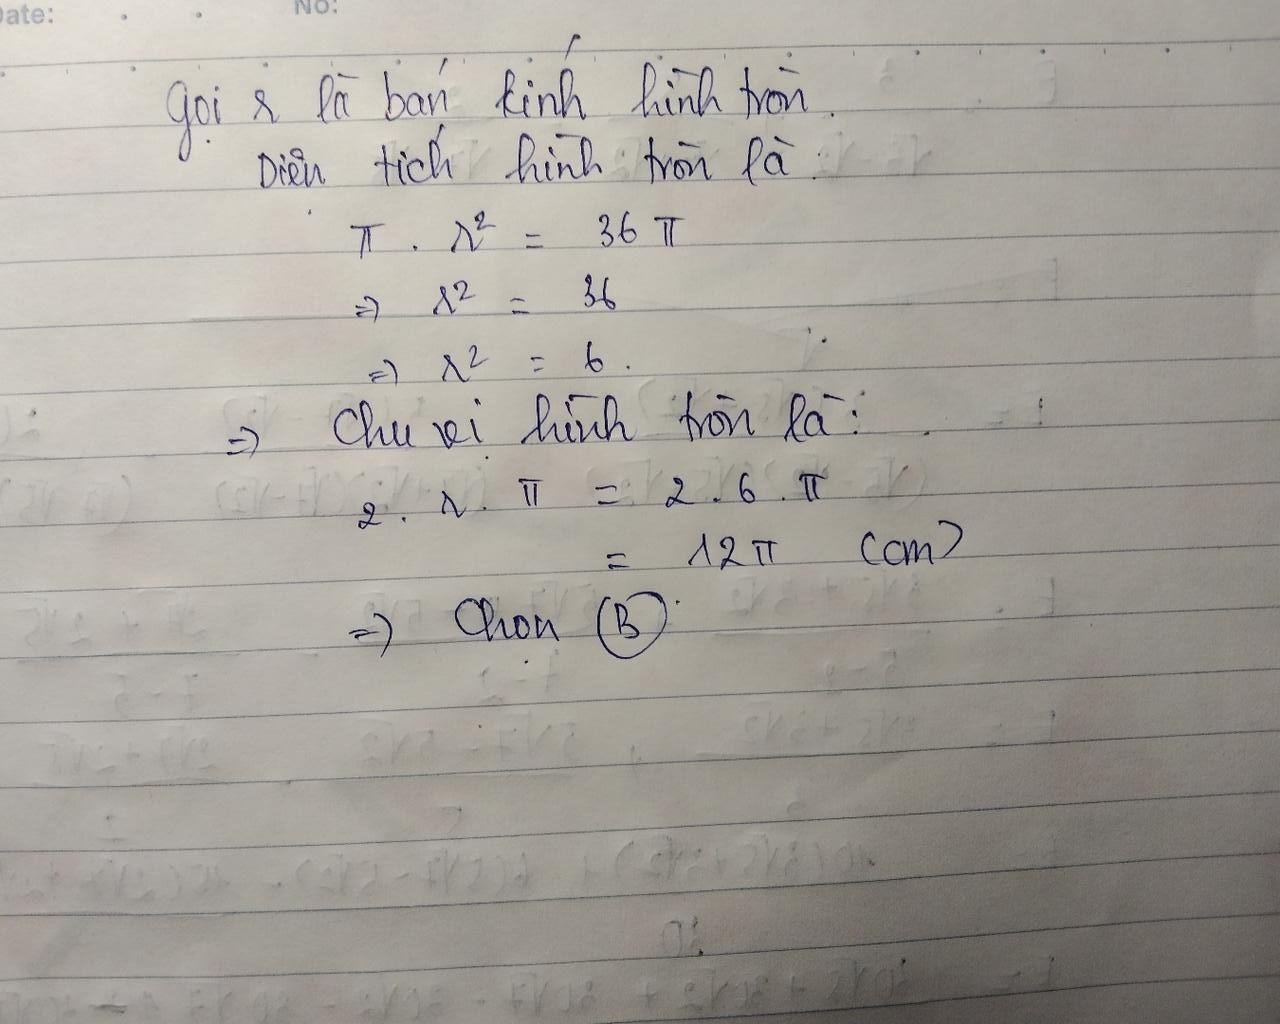 Date: No:
Gọi r là bán kính hình tròn.
Diện tích hình tròn là:
π . r² = 36 π
=> r² = 36
=> r² = 6.
=> Chu vi hình tròn là:
2 . r . π = 2 . 6 . π
= 12 π (cm)
=> Chọn (B)